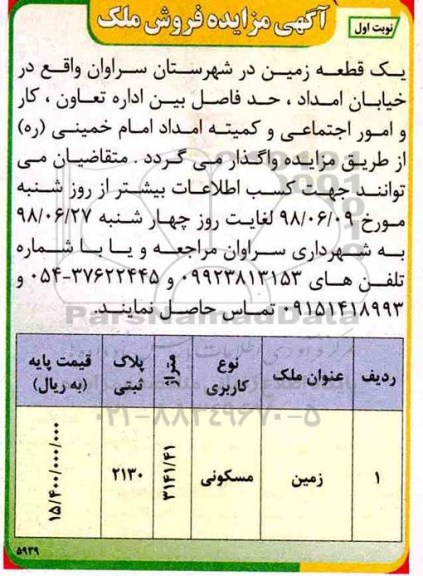 آگهی مزایده فروش ملک
نوبت اول
یک قطعه زمین در شهرستان سراوان واقع در
خیابان امداد ، حد فاصل بین اداره تعاون ، کار
و امور اجتماعی و کمیته امداد امام خمینی (ره)
از طریق مزایده واگذار می گردد . متقاضیان می
توانند جهت کسب اطلاعات بیشتر از روز شنبه
مورخ ۹۸/۰۶/۰۹ لغایت روز چهار شنبه ۹۸/۰۶/۲۷
به شهرداری سراوان مراجعه و یا با شماره
تلفن های ۰۹۹۲۳۸۱۳۱۵۳ و ۳۷۶۲۲۴۴۵-۰۵۴ و
۰۹۱۵۱۴۱۸۹۹۳ تماس حاصل نمایند.
ParsNamadData
ردیف عنوان ملک نوع کاربری متراژ پلاک ثبتی قیمت پایه (به ریال)
۰۲۱-۸۸۳۴۹۶۷۰-۵
۱ زمین مسکونی ۳۱۴۱/۴۱ ۲۱۳۰ ۱۵/۴۰۰/۰۰۰/۰۰۰
۵۹۳۹